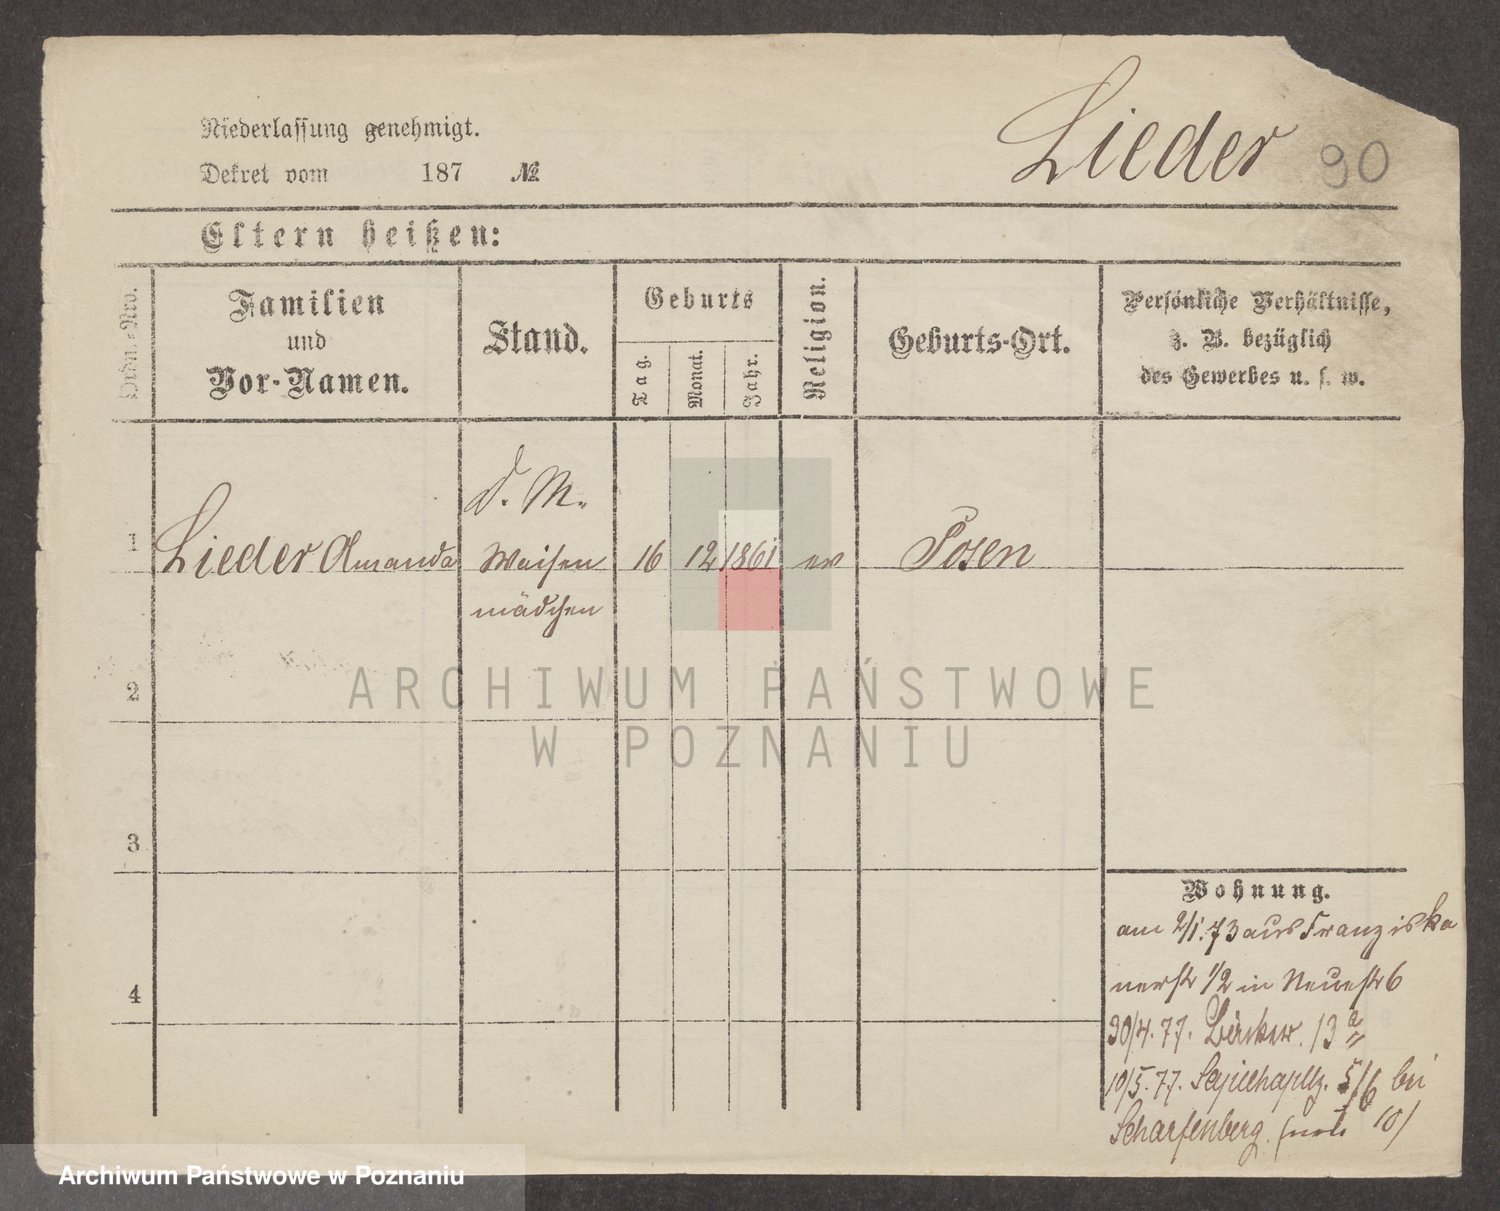 Niederlassung genehmigt.
Dekret vom 187 №
Lieder 90
Eltern heißen:
Ordn.-Nro.
Familien
und
Vor-Namen.
Stand.
Geburts
Tag.
Monat.
Jahr.
Religion.
Geburts-Ort.
Persönliche Verhältnisse,
z. B. bezüglich
des Gewerbes u. s. w.
D. M.
1 Lieder Amanda Waisen 16 12 1861 ev Posen
mädchen
2
ARCHIWUM PAŃSTWOWE
W POZNANIU
3
Wohnung.
am 2/1.73 aus Franziska
nerstr 1/2 in Neuestr 6
4
30/4.77. 13 a
10/5.77. Sapiehapltz. 5/6 bei
Scharfenberg. 10)
Archiwum Państwowe w Poznaniu